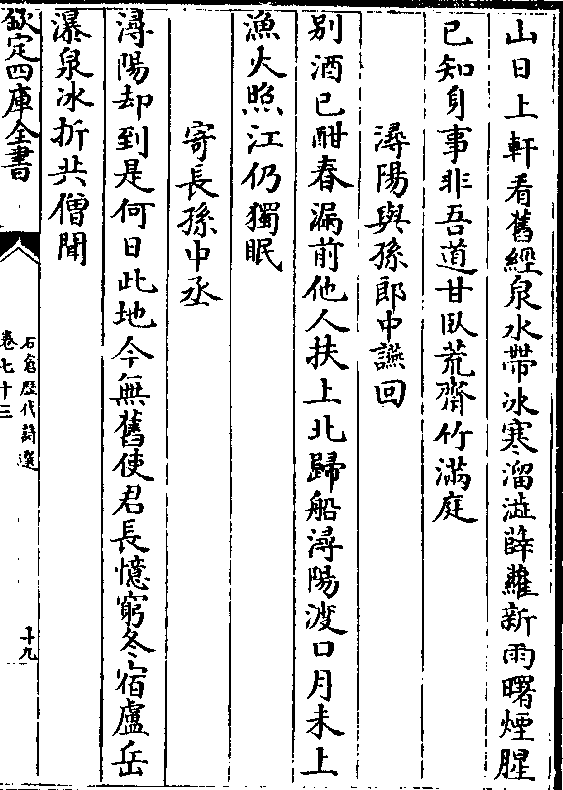 山日上軒看舊經泉水帶冰寒溜澁薜蘿新雨曙煙腥
已知身事非吾道甘臥荒齋竹滿庭
潯陽與孫郎中讌回
別酒已酣春漏前他人扶上北歸船潯陽渡口月未上
漁火照江仍獨眠
寄長孫中丞
潯陽却到是何日此地今無舊使君長憶窮冬宿廬岳
瀑泉冰折共僧聞
欽定四庫全書
石倉歷代詩選
卷七十三
十九